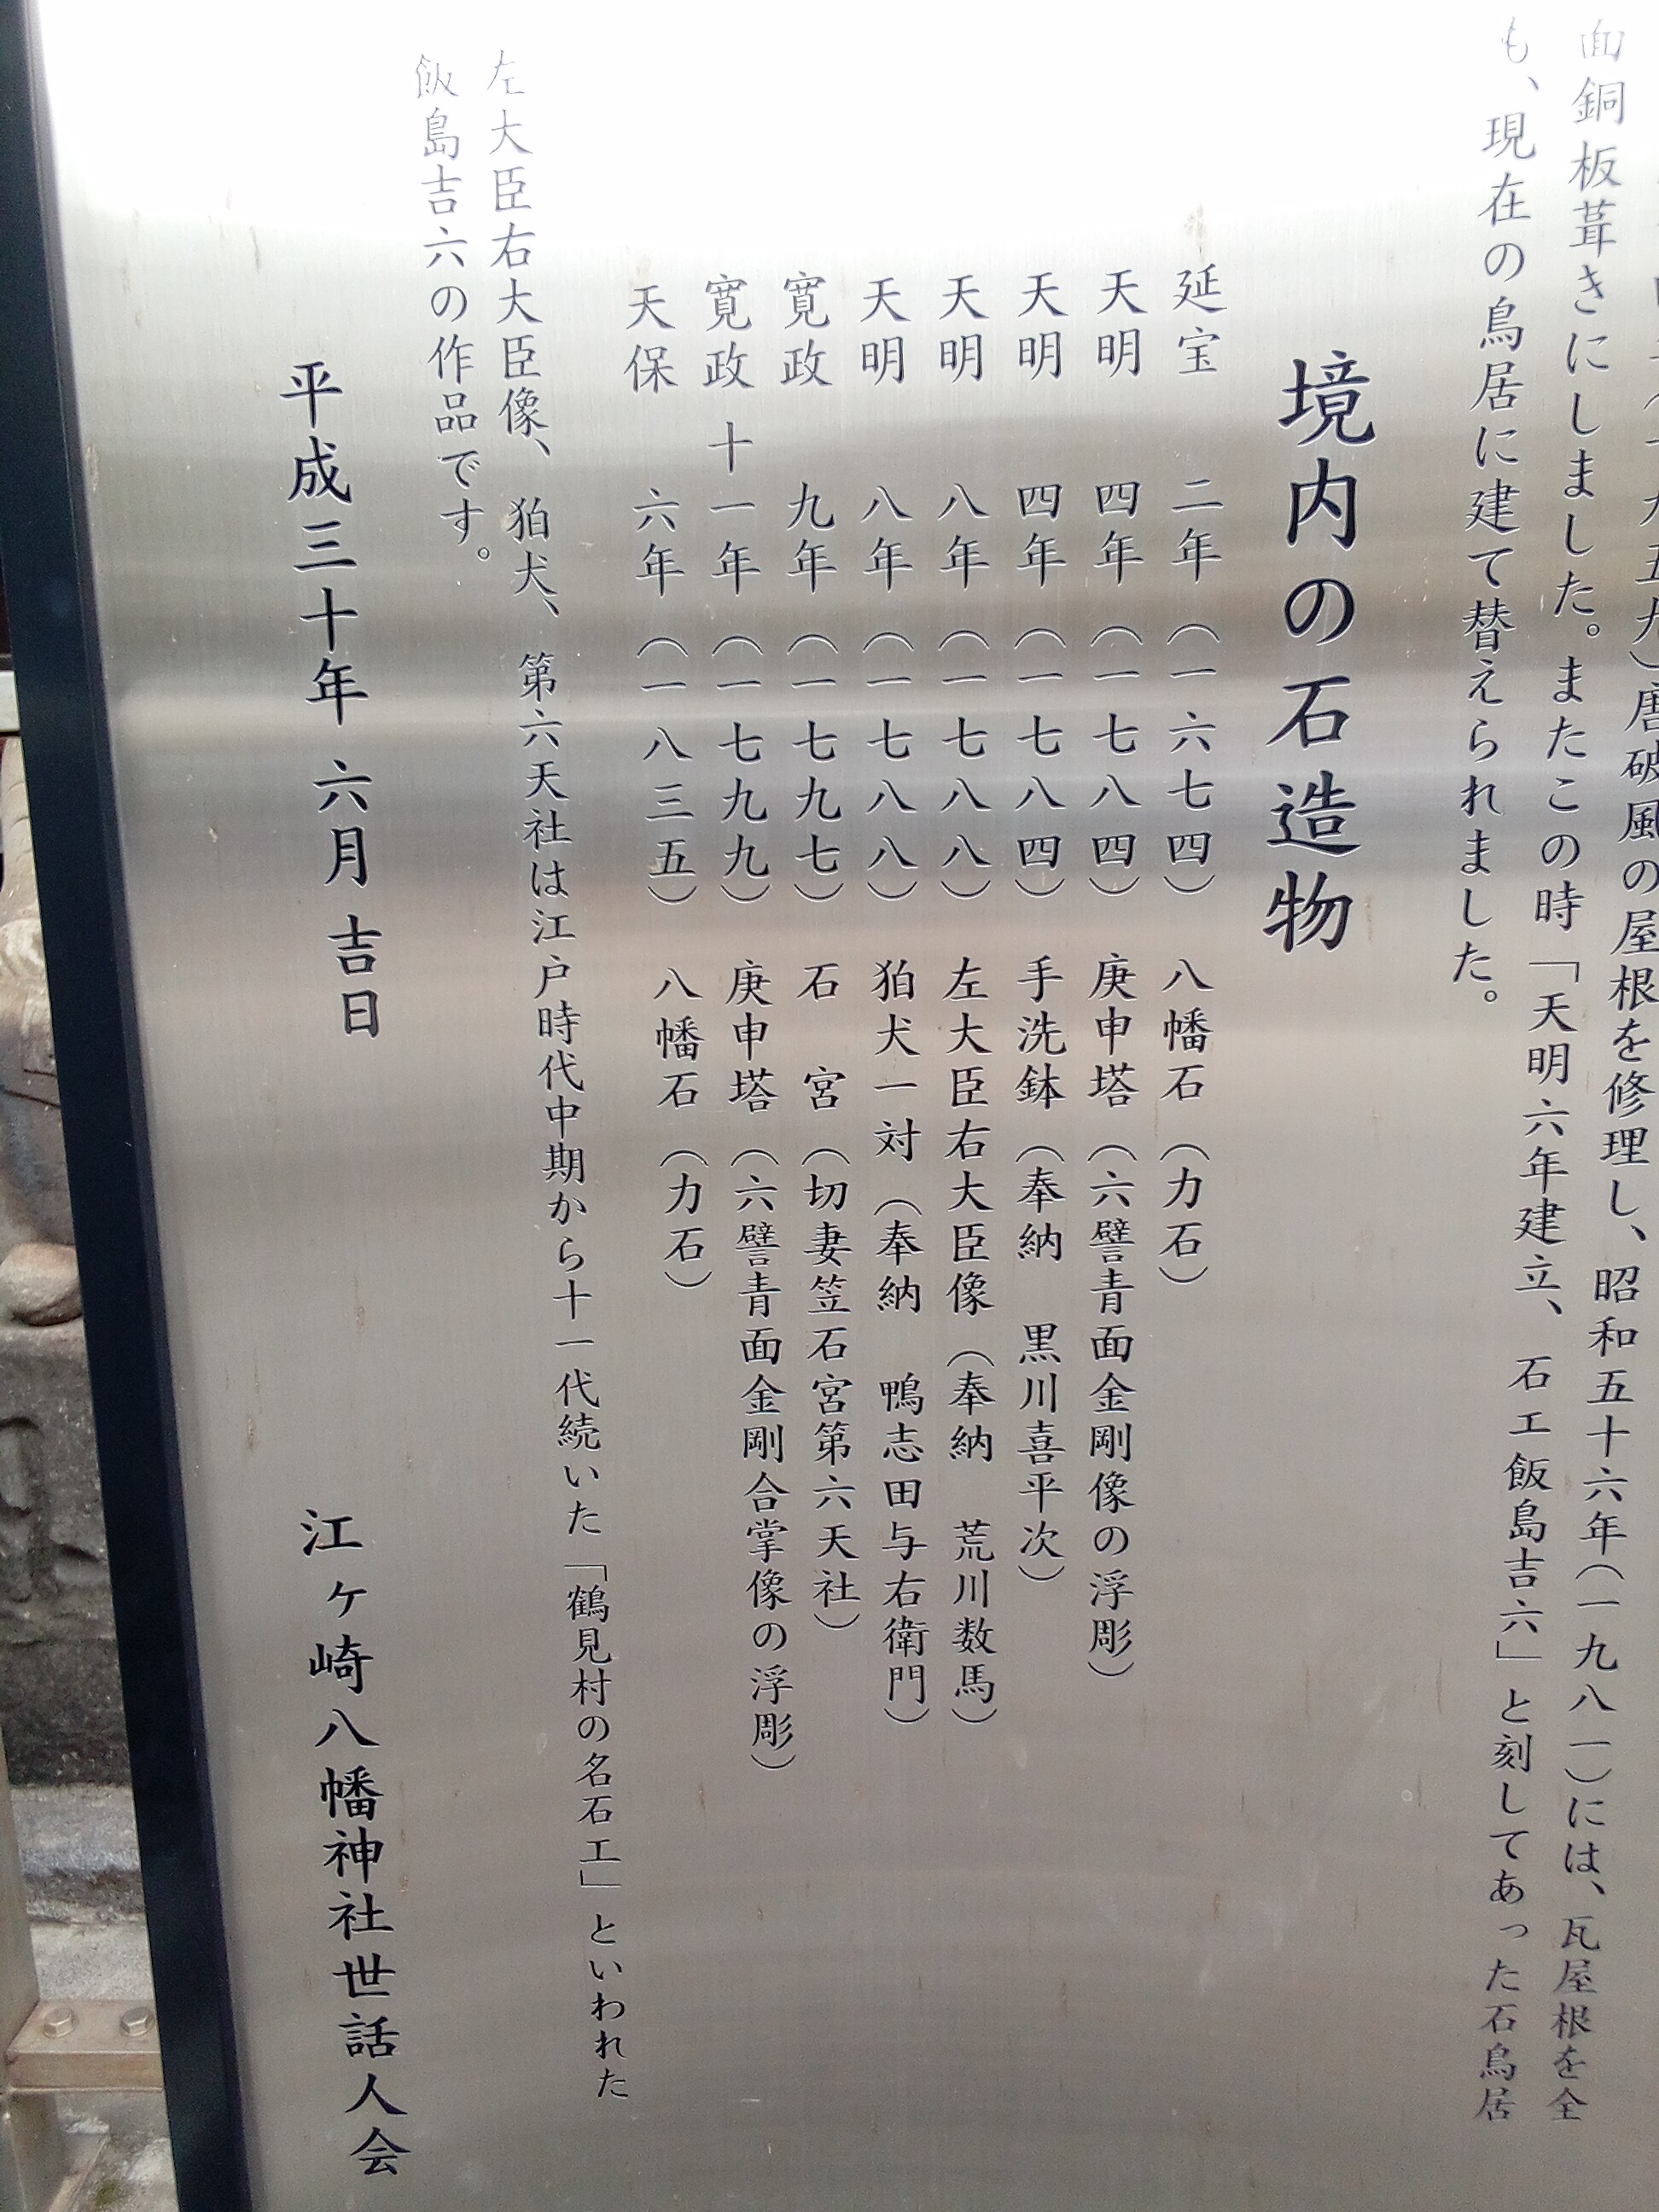 九五九)唐破風の屋根を修理し、昭和五十六年(一九八一)には、瓦屋根を全
面銅板葺きにしました。またこの時「天明六年建立、石工飯島吉六」と刻してあった石鳥居
も、現在の鳥居に建て替えられました。
境内の石造物
延宝 二年(一六七四) 八幡石(力石)
天明 四年(一七八四) 庚申塔(六譬青面金剛像の浮彫)
天明 四年(一七八四) 手洗鉢(奉納 黒川喜平次)
天明 八年(一七八八) 左大臣右大臣像(奉納 荒川数馬)
天明 八年(一七八八) 狛犬一対(奉納 鴨志田与右衛門)
寛政 九年(一七九七) 石 宮(切妻笠石宮第六天社)
寛政 十一年(一七九九) 庚申塔(六譬青面金剛合掌像の浮彫)
天保 六年(一八三五) 八幡石(力石)
左大臣右大臣像、狛犬、第六天社は江戸時代中期から十一代続いた「鶴見村の名石工」といわれた
飯島吉六の作品です。
平成三十年 六月 吉日
江ヶ崎八幡神社世話人会